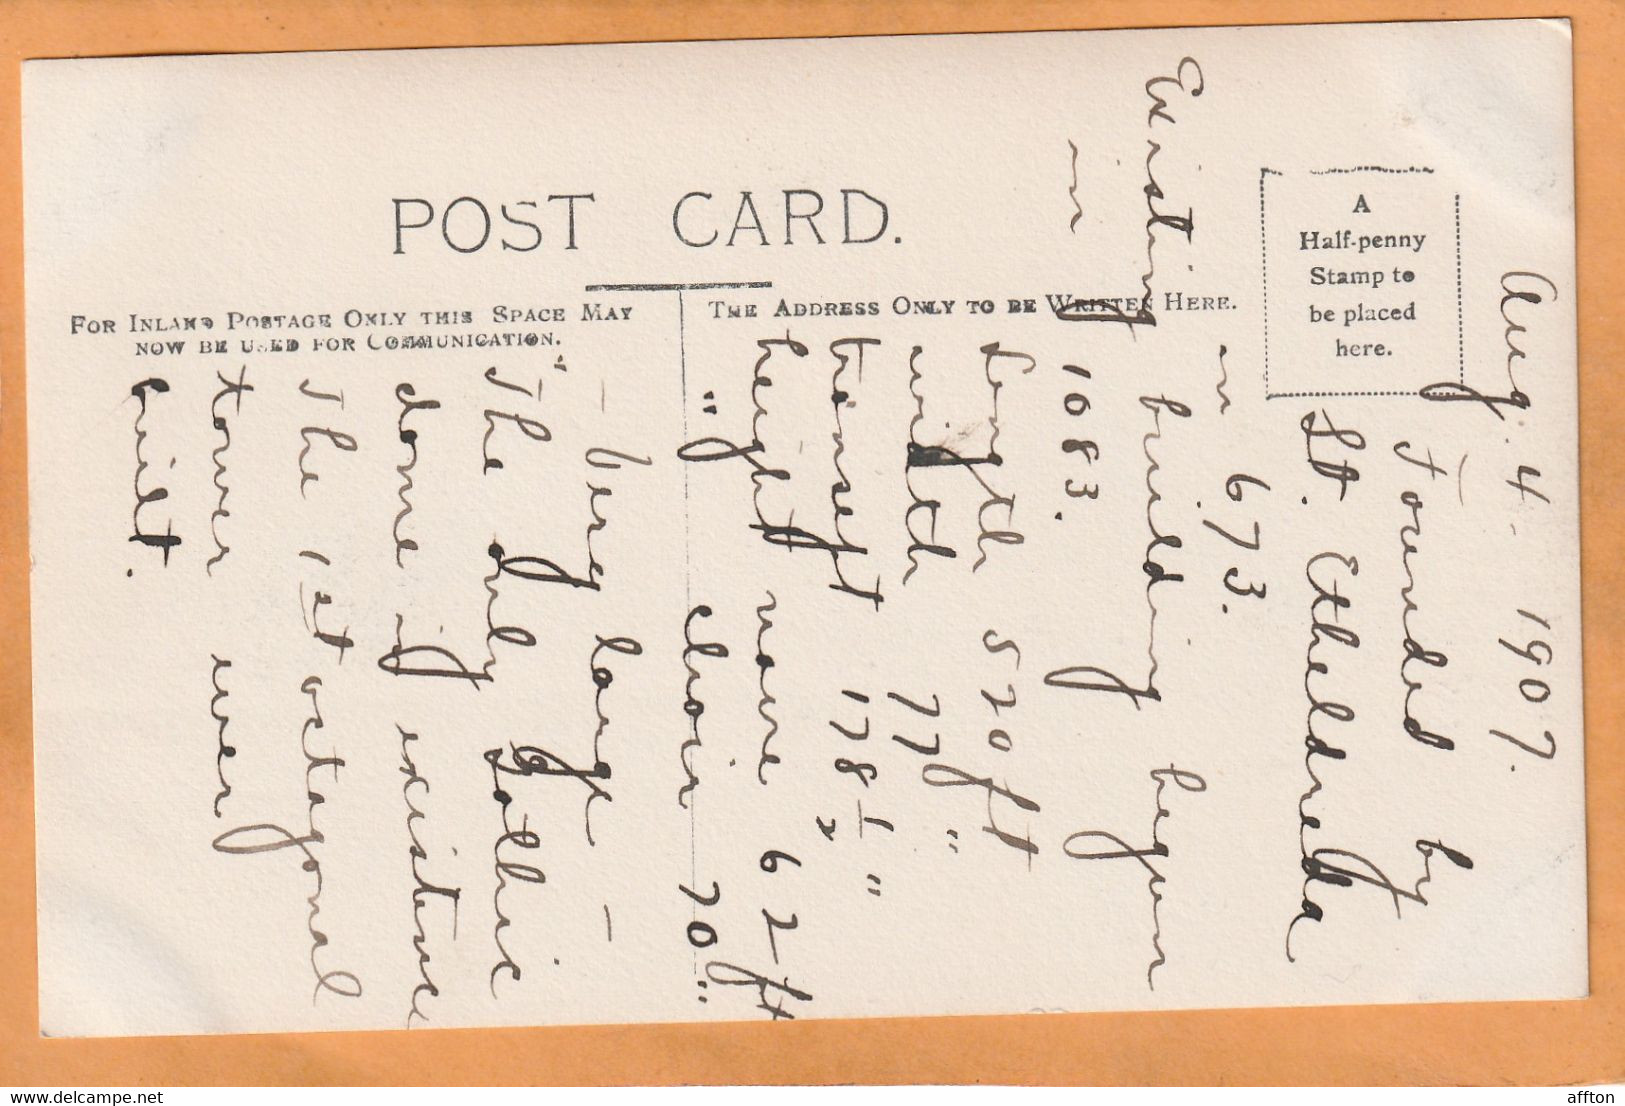 POST CARD.
FOR INLAND POSTAGE ONLY THIS SPACE MAY
NOW BE USED FOR COMMUNICATION.
THE ADDRESS ONLY TO BE WRITTEN HERE.
A
Half-penny
Stamp to
be placed
here.
Aug. 4 - 1907.
Founded by
St. Etheldreda
in 673.
Existing building begun
in 1083.
Length 520 ft
width 77 "
transept 178 1/2 "
height nave 62 ft
" choir 70 "
— Very large —
"The only Gothic
dome in existence
The 1st octagonal
tower ever
built.
affton